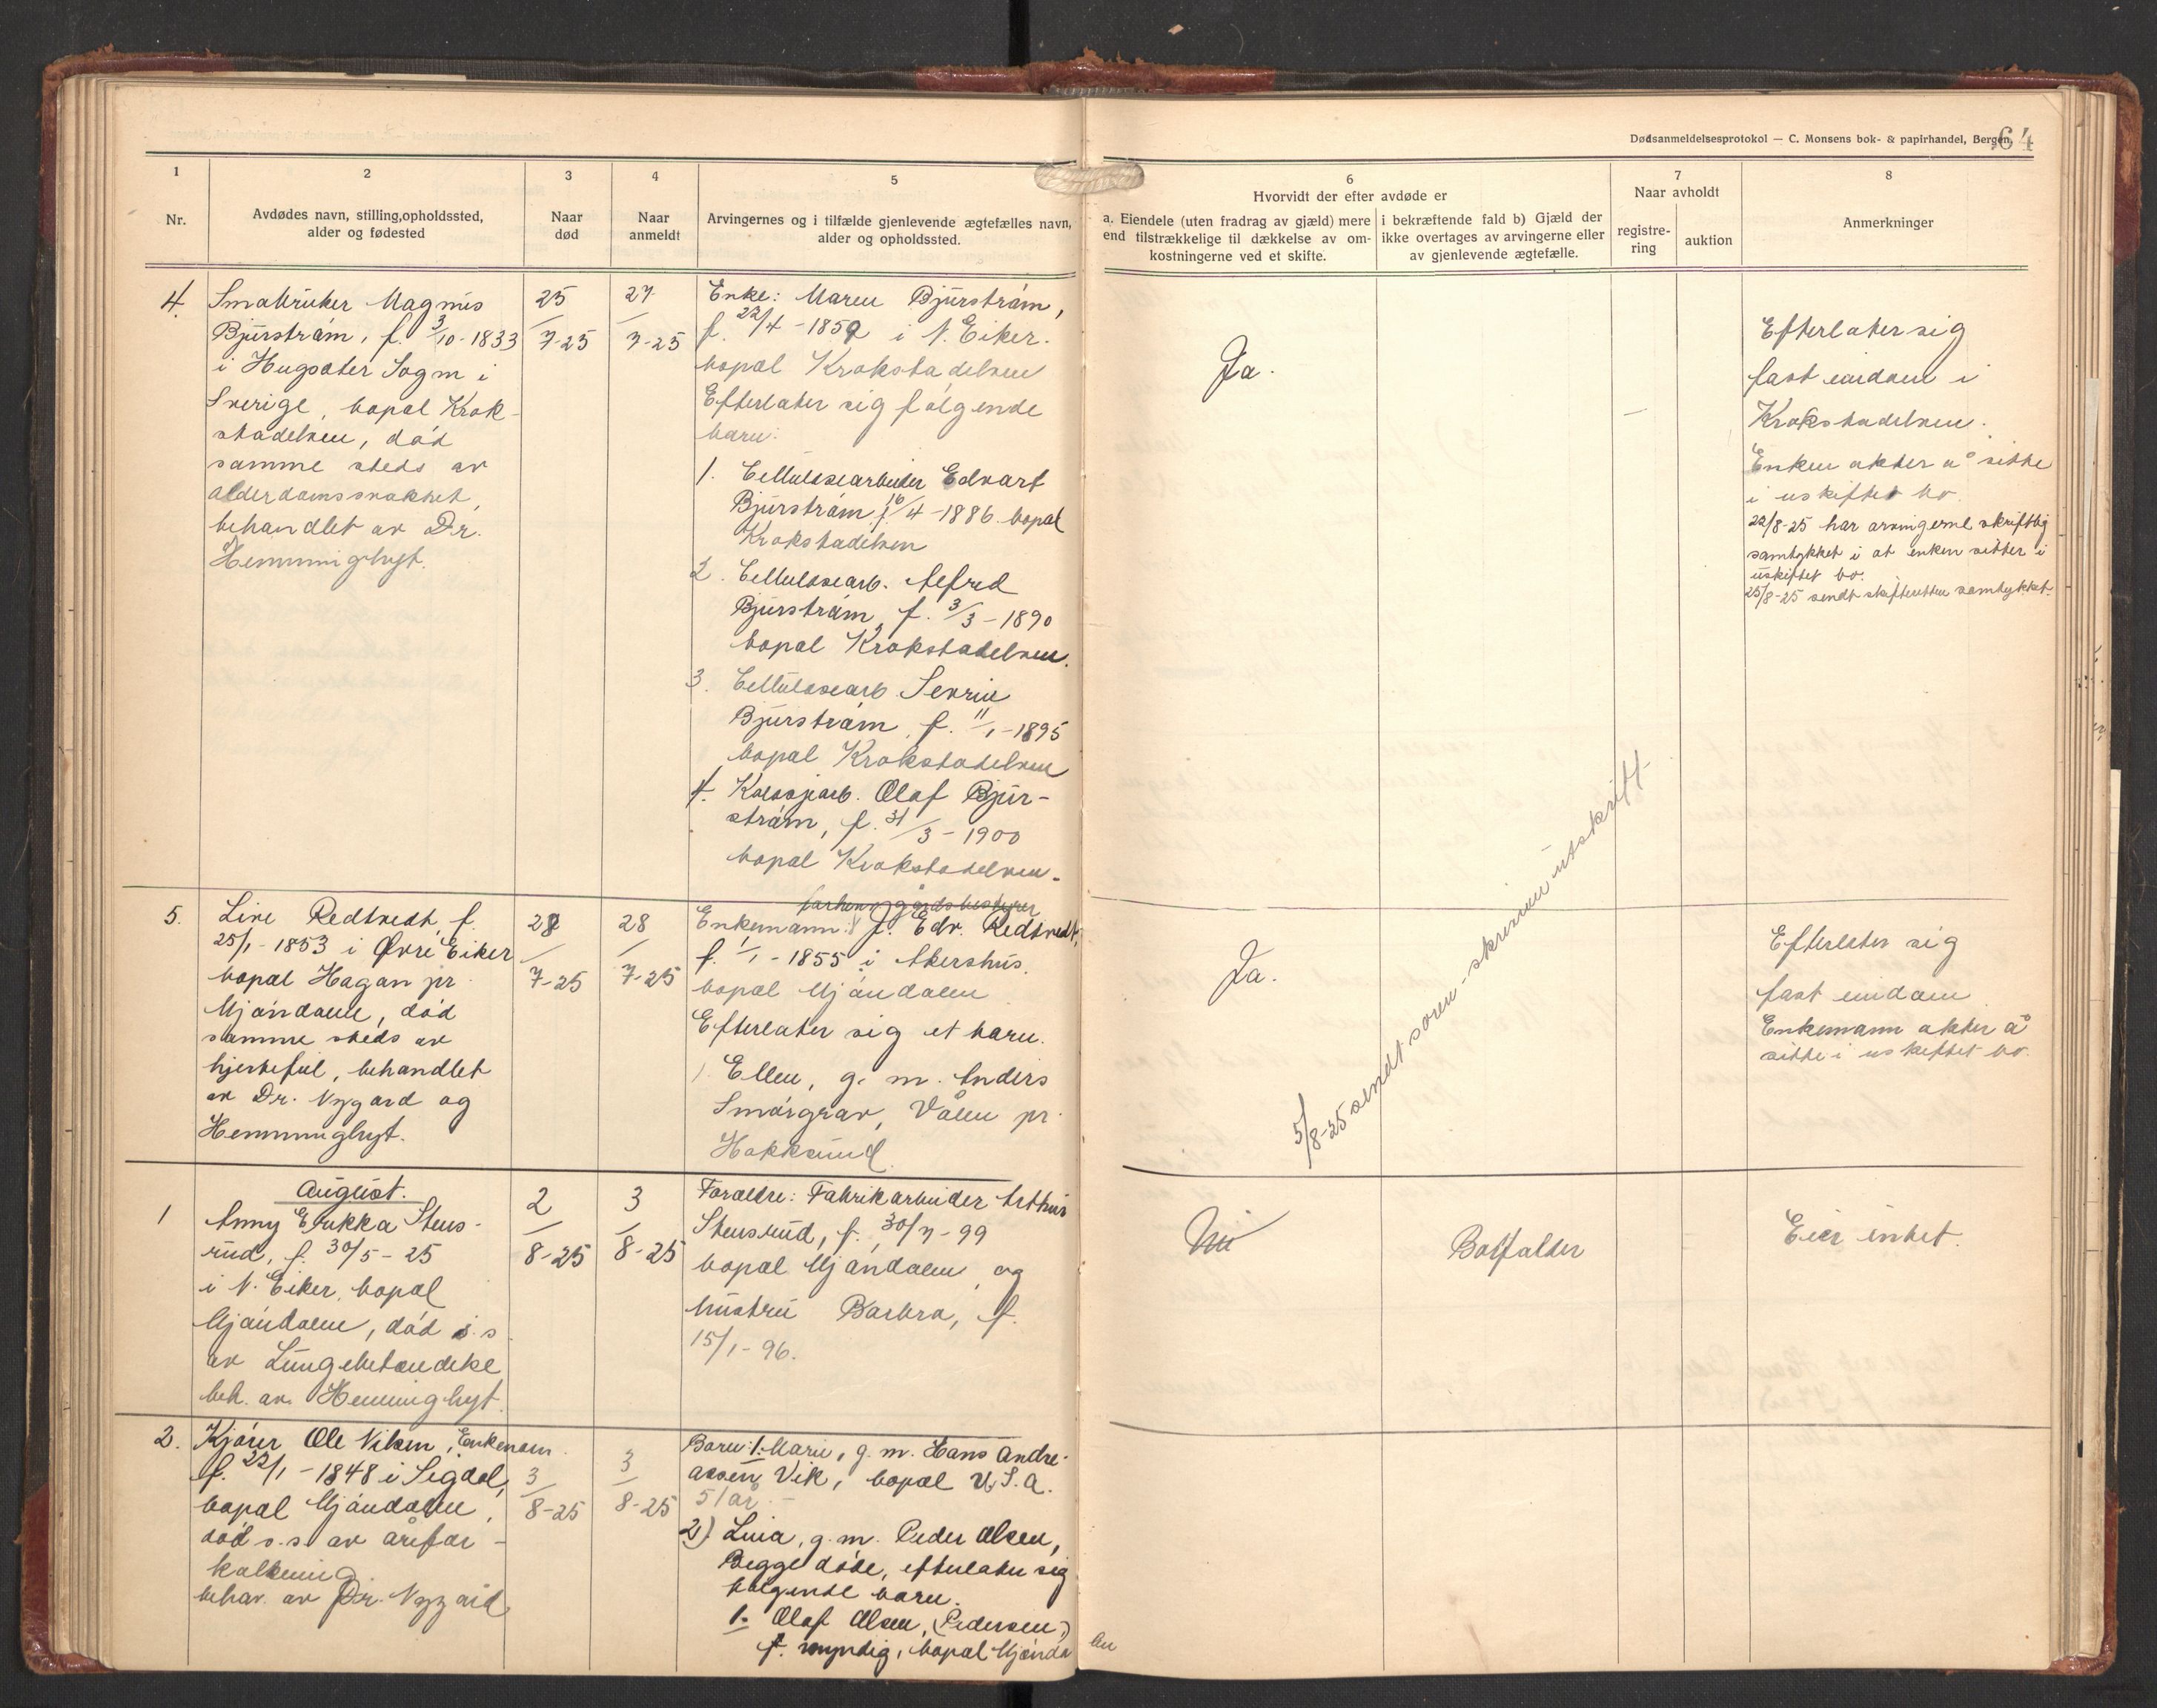 Dødsanmeldelsesprotokol — C. Monsens bok- & papirhandel, Bergen.
64
1
Nr.
2
Avdødes navn, stilling, opholdssted,
alder og fødested
3
Naar
død
4
Naar
anmeldt
5
Arvingernes og i tilfælde gjenlevende ægtefælles navn,
alder og opholdssted.
6
Hvorvidt der efter avdøde er
a. Eiendele (uten fradrag av gjæld) mere
end tilstrækkelige til dækkelse av om-
kostningerne ved et skifte.
i bekræftende fald b) Gjæld der
ikke overtages av arvingerne eller
av gjenlevende ægtefælle.
7
Naar avholdt
registre-
ring
auktion
8
Anmerkninger
4.
Småbruker Magnus
Bjurstrøm, f. 3/10-1833
i Hugsæter Sogn i
Sverige, bopæl Krok-
stadelven, død
samme steds av
alderdomssvakhet,
behandlet av Dr.
Hemminghyt.
25/7-25
27/7-25
Enke: Maren Bjurstrøm,
f. 22/4-1859 i N. Eiker.
bopæl Krokstadelven
Efterlater sig følgende
barn:
1. Cellulosearbeider Edvart
Bjurstrøm, f. 16/4-1886. bopæl
Krokstadelven
2. Cellulosearb. Alfred
Bjurstrøm, f. 3/3-1890
bopæl Krokstadelven.
3. Cellulosearb. Sevrin
Bjurstrøm, f. 11/1-1895
bopæl Krokstadelven
4. Olaf Bjur-
strøm, f. 31/3-1900
bopæl Krokstadelven.
Ja.
—
Efterlater sig
fast eiendom i
Krokstadelven.
Enken akter å sitte
i uskiftet bo.
22/8-25 har arvingerne skriftlig
samtykket i at enken sitter i
uskiftet bo.
25/8-25 sendt skifteretten samtykket.
5.
Live Redtvedt, f.
25/1-1853 i Øvre Eiker
bopæl Hagan pr
Mjøndalen, død
samme steds av
hjertefeil, behandlet
av Dr. Nygård og
Hemminghyt.
28/7-25
28/7-25
forhenv. gårdsbestyrer
Enkemann: J. Edv. Redtvedt,
f. 1/1-1855 i Akershus.
bopæl Mjøndalen
Efterlater sig et barn.
1. Ellen, g. m. Anders
Smørgrav, Vålen pr.
Hokksund.
Ja.
5/8-25 sendt soren-skriveren utskrift.
Efterlater sig
fast eiendom.
Enkemann akter å
sitte i uskiftet bo.
August.
1
Anny Erikka Stens-
rud, f. 30/5-25
i N. Eiker, bopæl
Mjøndalen, død s.s
av Lungebetændelse
beh. av Hemminghyt.
2/8-25
3/8-25
Forældre: Fabrikarbeider Arthur
Stensrud, f. 30/7-99
bopæl Mjøndalen og
hustru Barbra, f.
15/1-96.
Nei
Bortfalder
Eier intet.
2.
Kjører Ole Viken, Enkemann.
f. 22/1-1848 i Sigdal,
bopæl Mjøndalen,
død s.s. av årefor-
kalkning
behan. av Dr. Nygård
3/8-25
3/8-25
Barn: 1. Marie, g. m. Hans Andre-
assen Vik, bopæl U.S.A.
51 år.
2). Lina, g. m. Peder Olsen,
Begge døde, efterlater sig
følgende barn.
1. Olaf Olsen, (Pedersen,)
f. myndig, bopæl Mjønda
len